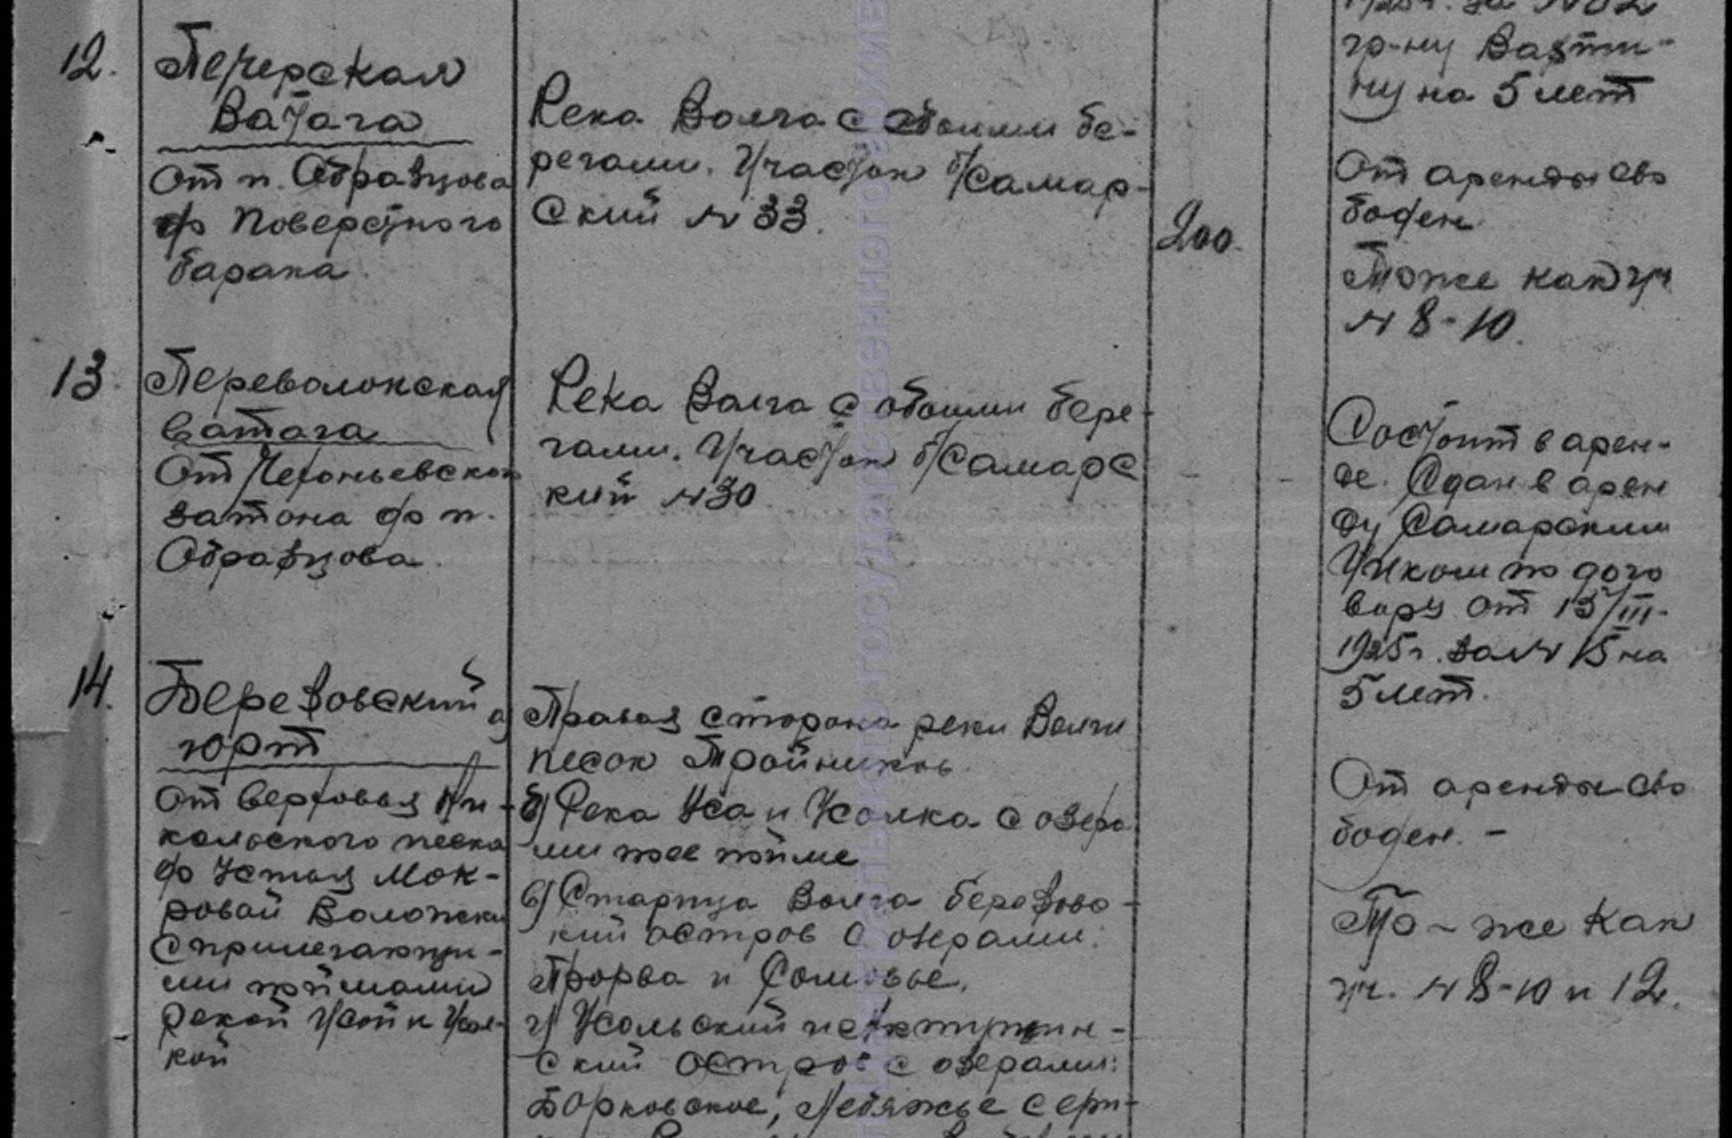 12.
Печерская
Ватага
От п. Образцова
до Поверстного
барака.
Река Волга с обоими бе-
регами. Участок б/Самар-
ский № 33.
200.
гр-ну
ну на 5 лет
От аренды сво
боден.
Тоже как уч
№ 8-10.
13.
Переволокская
Ватага
От
затона до п.
Образцова.
Река Волга с обоими бере-
гами. Участок б/Самарс
кий № 30
Состоит в арен-
де. Сдан в арен
ду Самарским
Уиком по дого
вору от 15/III-
1925 г. за № 15 на
5 лет.
14.
Березовский
юрт
От верховья Ни-
кольского песка
до устья Мок-
ровой Воложки
с прилегающи-
ми поймами
рекой Усой и Усол-
кой
а) Правая сторона реки Волги
песок Тройников
б) Река Уса и Усолка с озера
ми по ее пойме
в) Старица Волга Березово-
кий остров с озерами:
Прорва и Сомовье.
г) Усольский и
ский остров с озерами:
Борковское, Лебяжье с ери-
От аренды сво
боден. -
То-же как
уч. № 8-10 и 12.